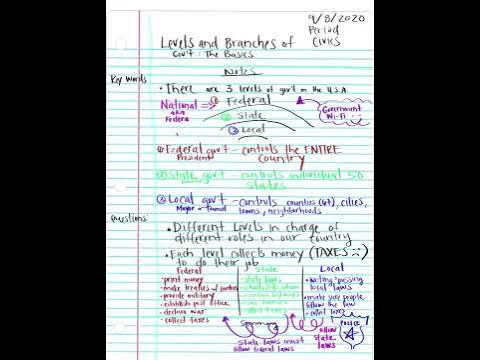 9/8/2020
Period
Civics
Levels and Branches of
Gov't: The Basics
Notes
Key Words
• There are 3 levels of gov't in the U.S.A.
National ① Federal
aka
Federal
② State
③ Local
Government
Wi-Fi
① Federal gov't - controls the ENTIRE
President
Country
② State gov't - controls individual 50
states
③ Local gov't - controls counties (67), cities,
Mayor
towns, neighborhoods
Questions
• Different Levels in charge of
different roles in our country
• Each level collects money (TAXES
to do their job
Federal
State
Local
• print money
• state laws
• writing & passing
local laws
• make treaties
• provide military
• make sure people
follow the law
• establish post office
• declare war
• collect taxes
• collect taxes
Summary
State laws must
follow federal laws
follow
state
laws
POLICE